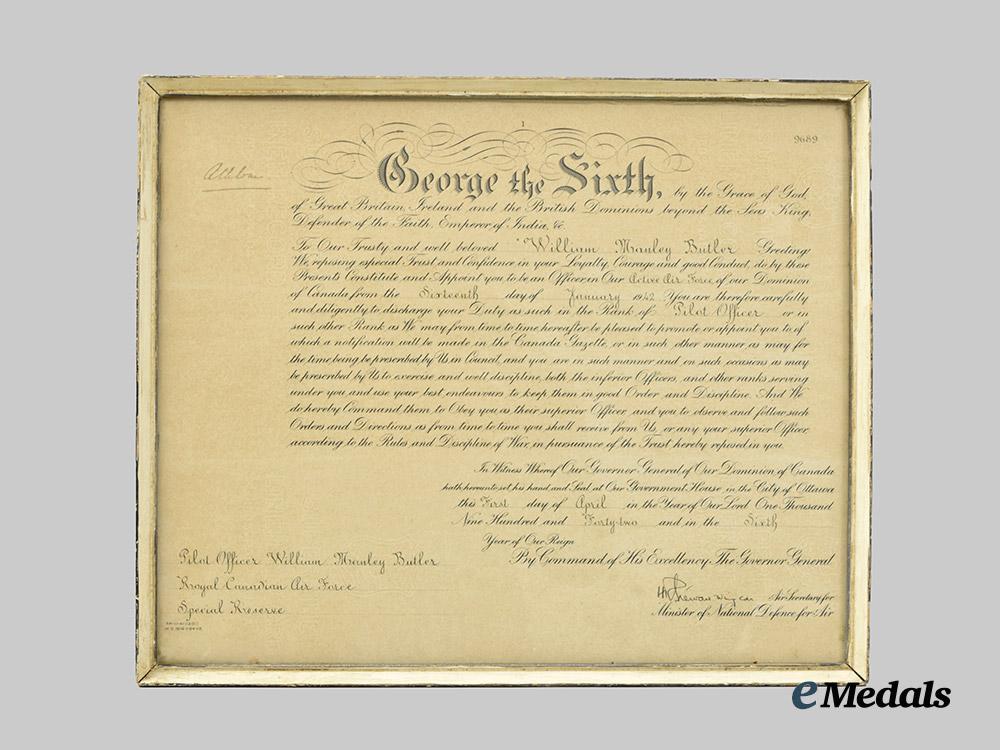 1
9689
Athlone
George the Sixth, by the Grace of God,
of Great Britain, Ireland and the British Dominions beyond the Seas King,
Defender of the Faith, Emperor of India, &c.
To Our Trusty and well beloved William Manley Butler Greeting:
We, reposing especial Trust and Confidence in your Loyalty, Courage and good Conduct, do by these
Presents Constitute and Appoint you to be an Officer in Our Active Air Force of our Dominion
of Canada from the Sixteenth day of January 1942 You are therefore carefully
and diligently to discharge your Duty as such in the Rank of Pilot Officer or in
such other Rank as We may from time to time hereafter be pleased to promote or appoint you to, of
which a notification will be made in the Canada Gazette, or in such other manner as may for
the time being be prescribed by Us in Council, and you are in such manner and on such occasions as may
be prescribed by Us to exercise and well discipline, both the inferior Officers, and other ranks serving
under you and use your best endeavours to keep them in good Order and Discipline. And We
do hereby Command them to Obey you as their superior Officer, and you to observe and follow such
Orders and Directions as from time to time you shall receive from Us, or any your superior Officer,
according to the Rules and Discipline of War, in pursuance of the Trust hereby reposed in you.
In Witness Whereof Our Governor General of Our Dominion of Canada
hath hereunto set his hand and Seal at Our Government House, in the City of Ottawa
this First day of April in the Year of Our Lord One Thousand
Nine Hundred and Forty-two and in the Sixth
Year of Our Reign
By Command of His Excellency The Governor General
Pilot Officer William Manley Butler
Royal Canadian Air Force
Special Reserve
Air Secretary for
Minister of National Defence for Air
eMedals